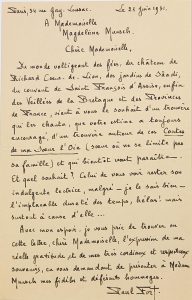 Paris, 34 rue Gay-Lussac, Le 25 juin 1931.
A Mademoiselle
Magdeleine Mursch.
Chère Mademoiselle,
Du monde voltigeant des fées, du château de
Richard Cœur-de-Lion, des jardins de Saadi,
du couvent de Saint François d'Assise, enfin
des Veillées de la Bretagne et des Provinces
de France, vient à vous le souhait d'un trouvère
qui les chanta, que votre estime a toujours
encouragé, d'un trouvère auteur de ces Contes
de ma Sœur l'Oie (sœur où va se limite pas
sa famille) et qui bientôt vont paraître.
Et quel souhait? Celui de vous voir rester son
indulgente lectrice, malgré – je le sais bien –
l'implacable dureté des temps, hélas! mais
surtout à cause d'elle...
Avec mon espoir, je vous prie de trouver en
cette lettre, chère Mademoiselle, l'expression de ma
réelle gratitude et de mes très cordiaux et respectueux
souvenirs, en vous demandant de présenter à Madame
Mursch mes fidèles et déférents hommages.
Paul Fort.